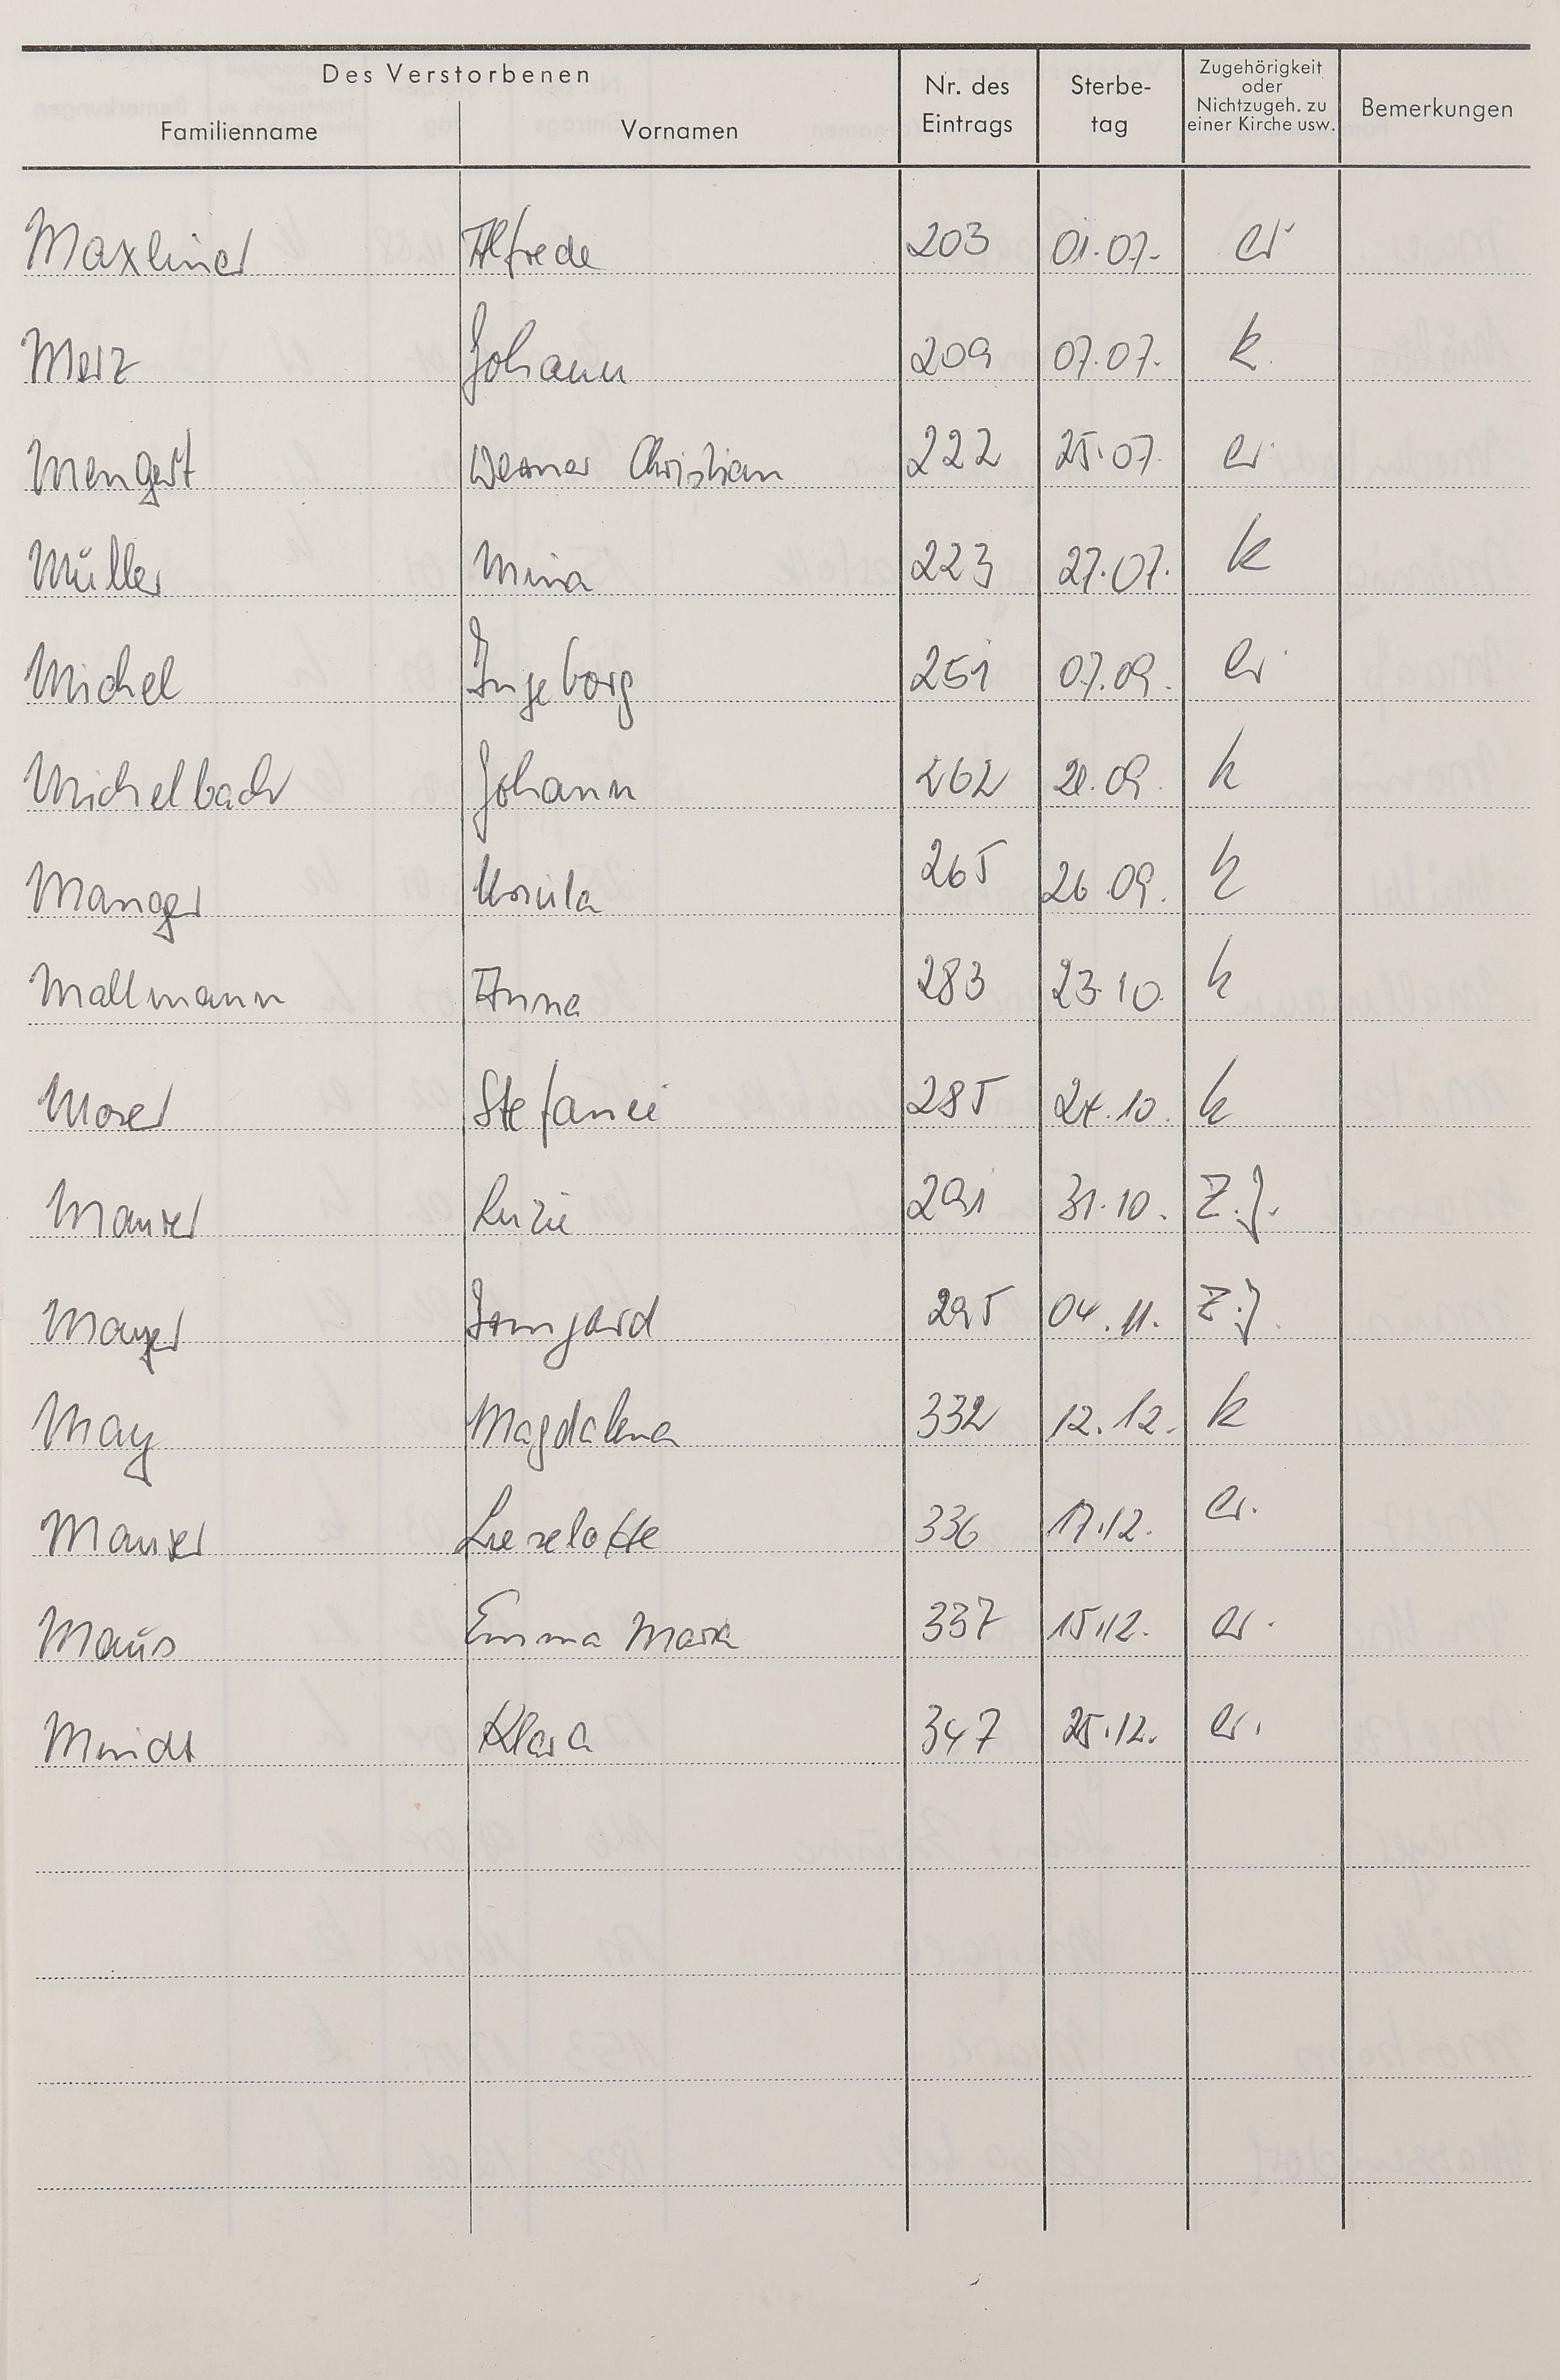 Des Verstorbenen
Familienname Vornamen Nr. des Eintrags Sterbe- tag Zugehörigkeit oder Nichtzugeh. zu einer Kirche usw. Bemerkungen
Maxliner Alfrede 203 01.07. er
Merz Johann 209 07.07. k.
Mengert Werner Christian 222 25.07. er
Müller Mina 223 27.07. k
Michel Ingeborg 251 07.09. er
Michelbach Johann 262 09. k
Manger Ursula 265 26.09. k
Mallmann Anna 283 23.10. k
Moser Stefanie 285 24.10. k
Maurer Luzie 291 31.10. Z.J.
Mayer Irmgard 295 04.11. Z.J.
May Magdalena 332 12.12. k
Maurer Lieselotte 336 17.12. er.
Maus Emma Maria 337 15.12. er.
Klara 347 25.12. er.